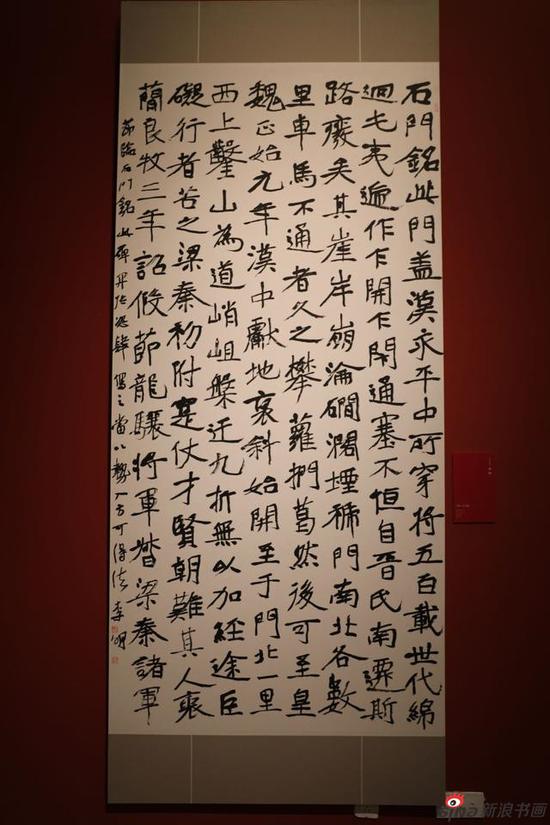 石門銘此門蓋漢永平中所穿將五百載世代綿
迴屯夷遞作乍開乍閉通塞不恒自晉氏南遷斯
路廢矣其崖岸崩淪磵濶堙褫門南北各數
里車馬不通者久之攀蘿捫葛然後可至皇
魏正始元年漢中獻地褒斜始開至于門北一里
西上鑿山為道峭岨槃迂九折無以加經途巨
礙行者苦之梁秦初附寔仗才賢朝難其人褒
蕳良牧三年詔假節龍驤將軍督梁秦諸軍
節臨石門銘此碑恣肆寫之當以勢入方可得法 李明
sina新浪书画